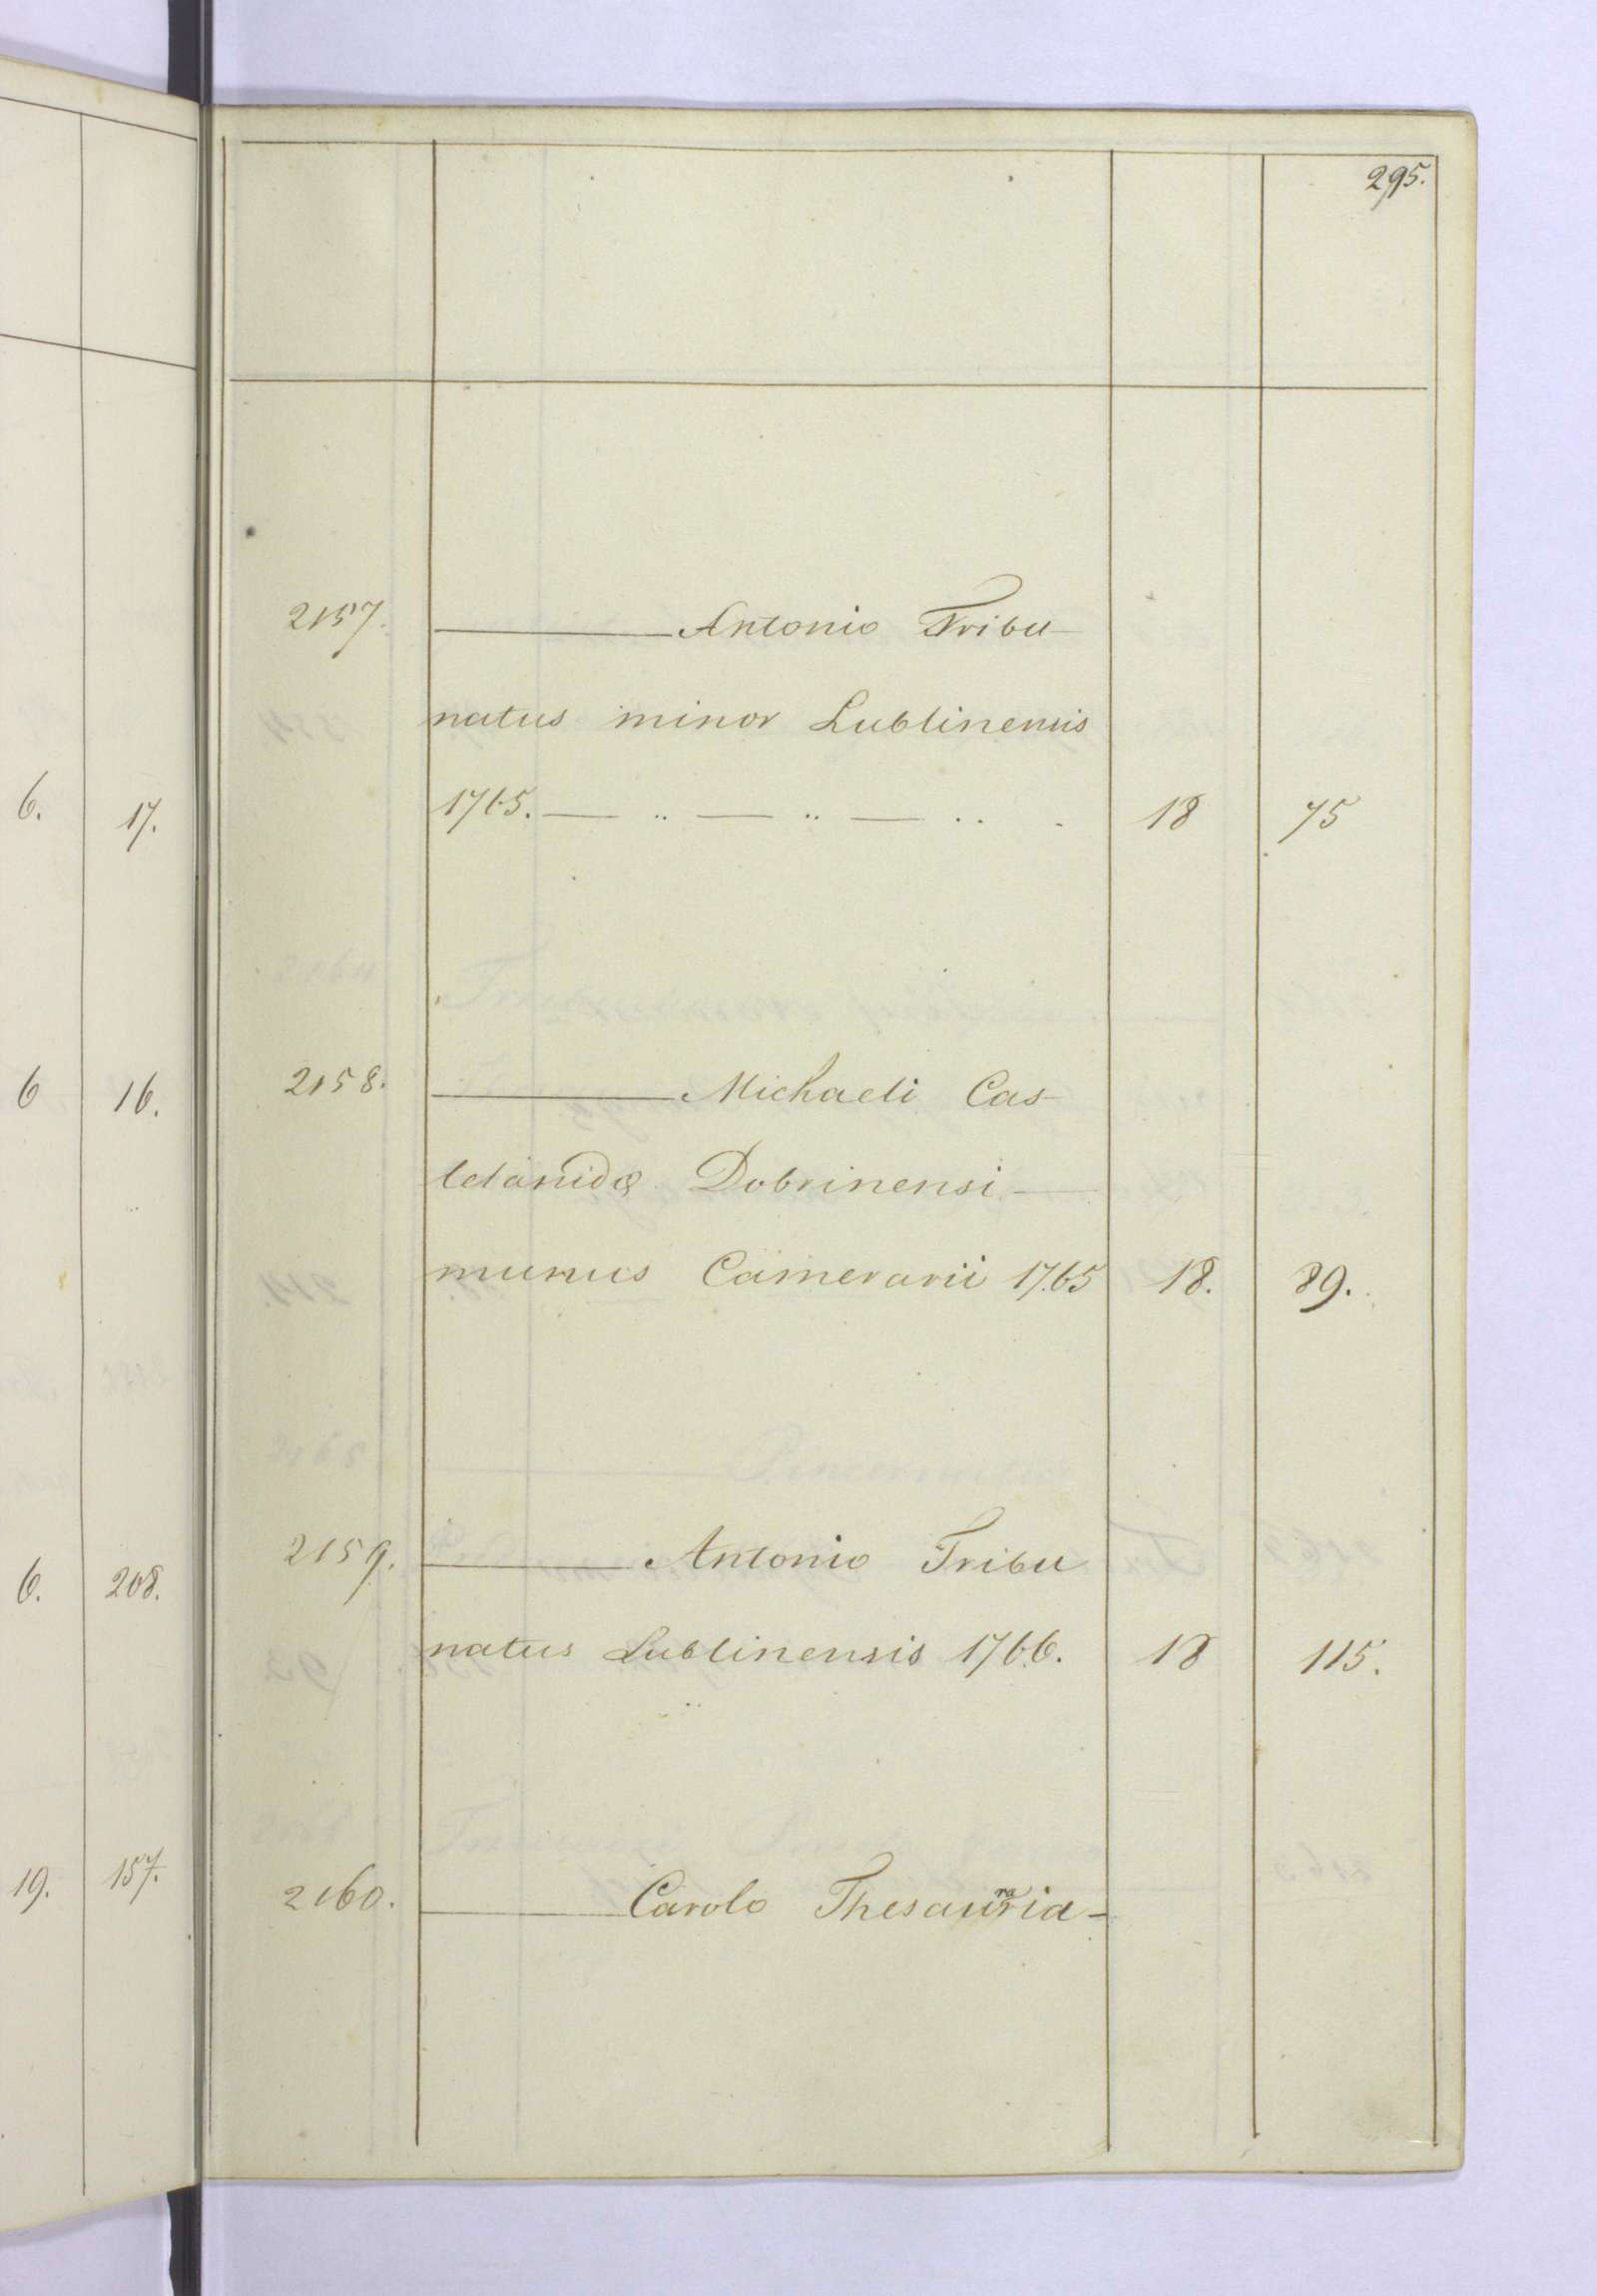 295.
2157. ——— Antonio Tribu-
natus minor Lublinensis
1765. — .. — .. — .. . 18 75
6. 17.
2158. ——— Michaeli Cas-
telanidæ Dobrinensi —
munus Camerarii 1765 18. 89.
6 16.
2159. ——— Antonio Tribu
natus Lublinensis 1766. 18 115.
6. 208.
2160. ——— Carolo Thesauraria-
19. 157.